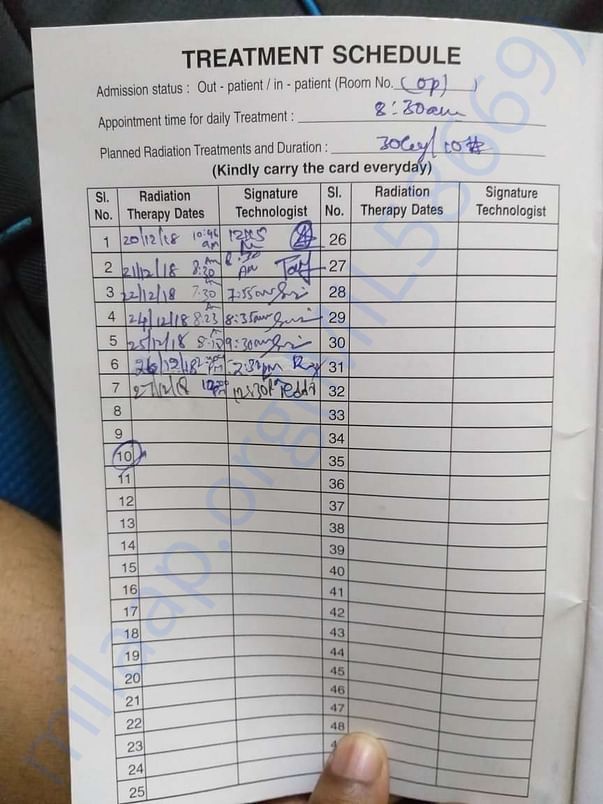 TREATMENT SCHEDULE
Admission status : Out - patient / in - patient (Room No. (OP) )
Appointment time for daily Treatment : 8:30am
Planned Radiation Treatments and Duration : 30Gy/10#
(Kindly carry the card everyday)
Sl. No. Radiation Therapy Dates Signature Technologist Sl. No. Radiation Therapy Dates Signature Technologist
1 20/12/18 10:46 am 26
2 21/12/18 8:20 Am 8:30 Am 27
3 22/12/18 7:30 7:55am 28
4 24/12/18 8:23 8:35am 29
5 25/12/18 9:30am 30
6 26/12/18 2:32pm 31
7 27/12/18 12:30 32
8 33
9 34
10 35
11 36
12 37
13 38
14 39
15 40
16 41
17 42
18 43
19 44
20 45
21 46
22 47
23 48
24
25